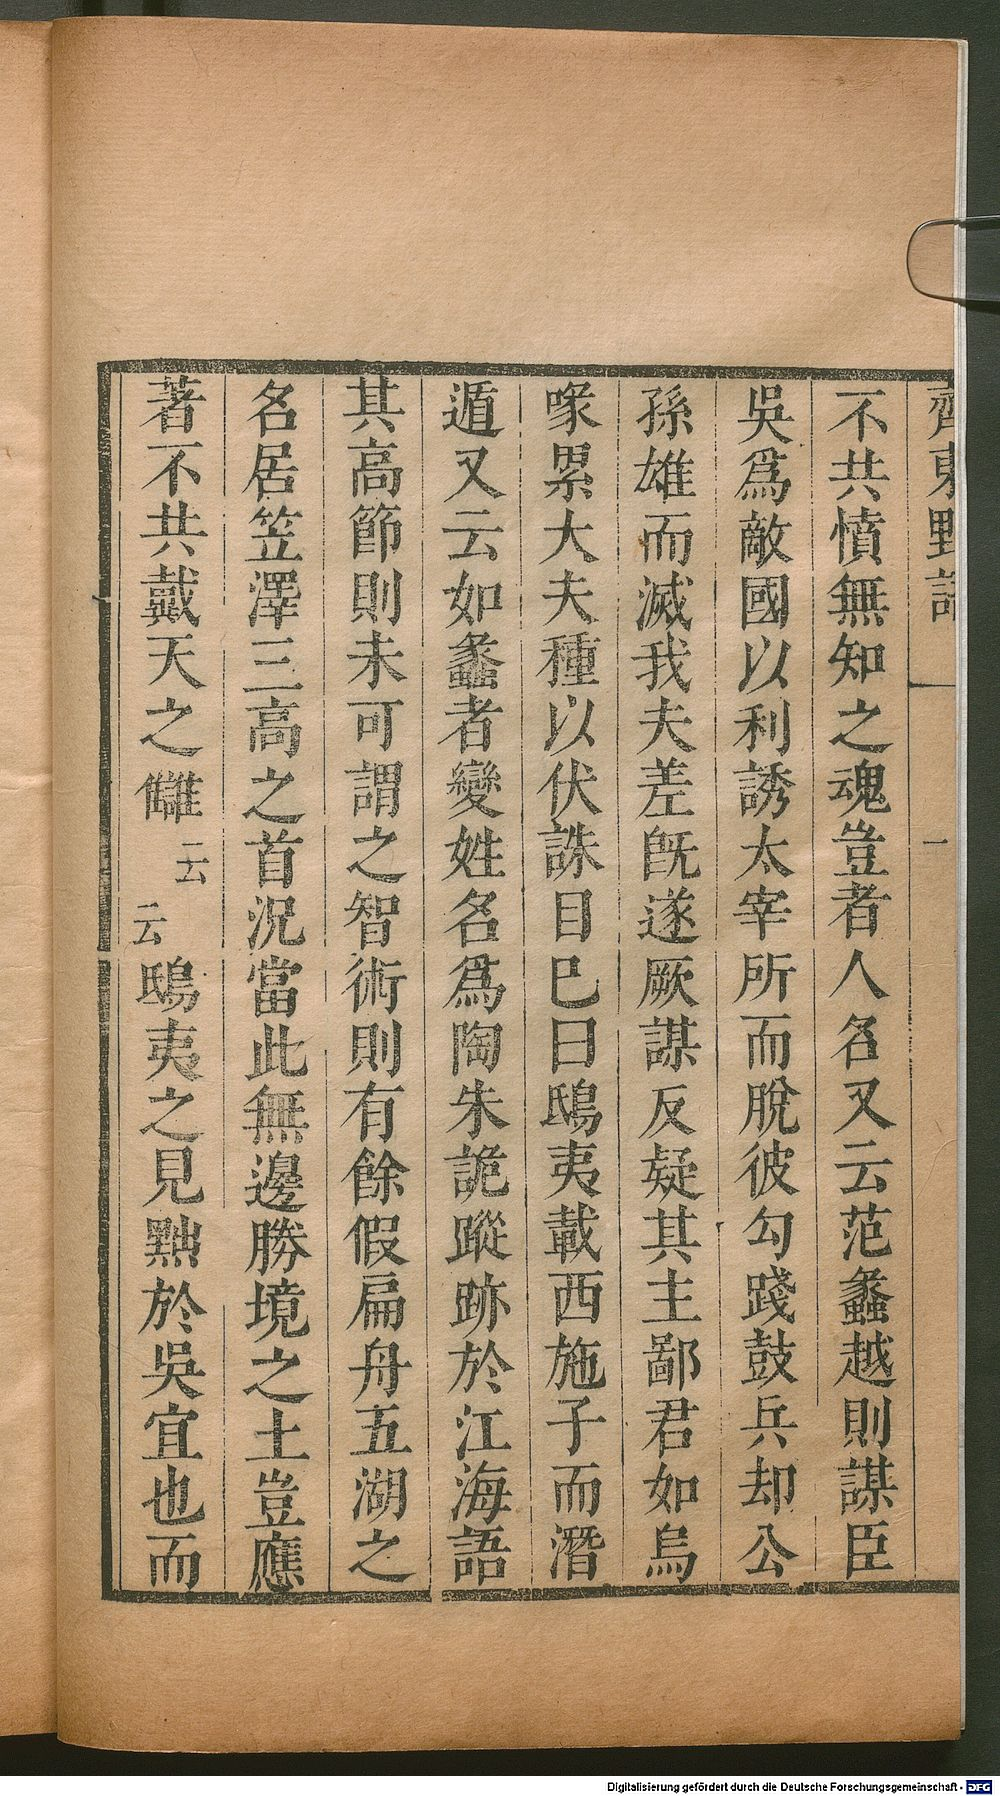 齊東野語
一
不共憤無知之魂豈者人名又云范蠡越則謀臣
吳爲敵國以利誘太宰所而脫彼勾踐鼓兵却公
孫雄而滅我夫差旣遂厥謀反疑其主鄙君如烏
喙累大夫種以伏誅目巳曰鴟夷載西施子而潛
遁又云如蠡者變姓名爲陶朱詭蹤跡於江海語
其高節則未可謂之智術則有餘假扁舟五湖之
名居笠澤三高之首況當此無邊勝境之土豈應
著不共戴天之讎云云鴟夷之見黜於吳宜也而
Digitalisierung gefördert durch die Deutsche Forschungsgemeinschaft - DFG